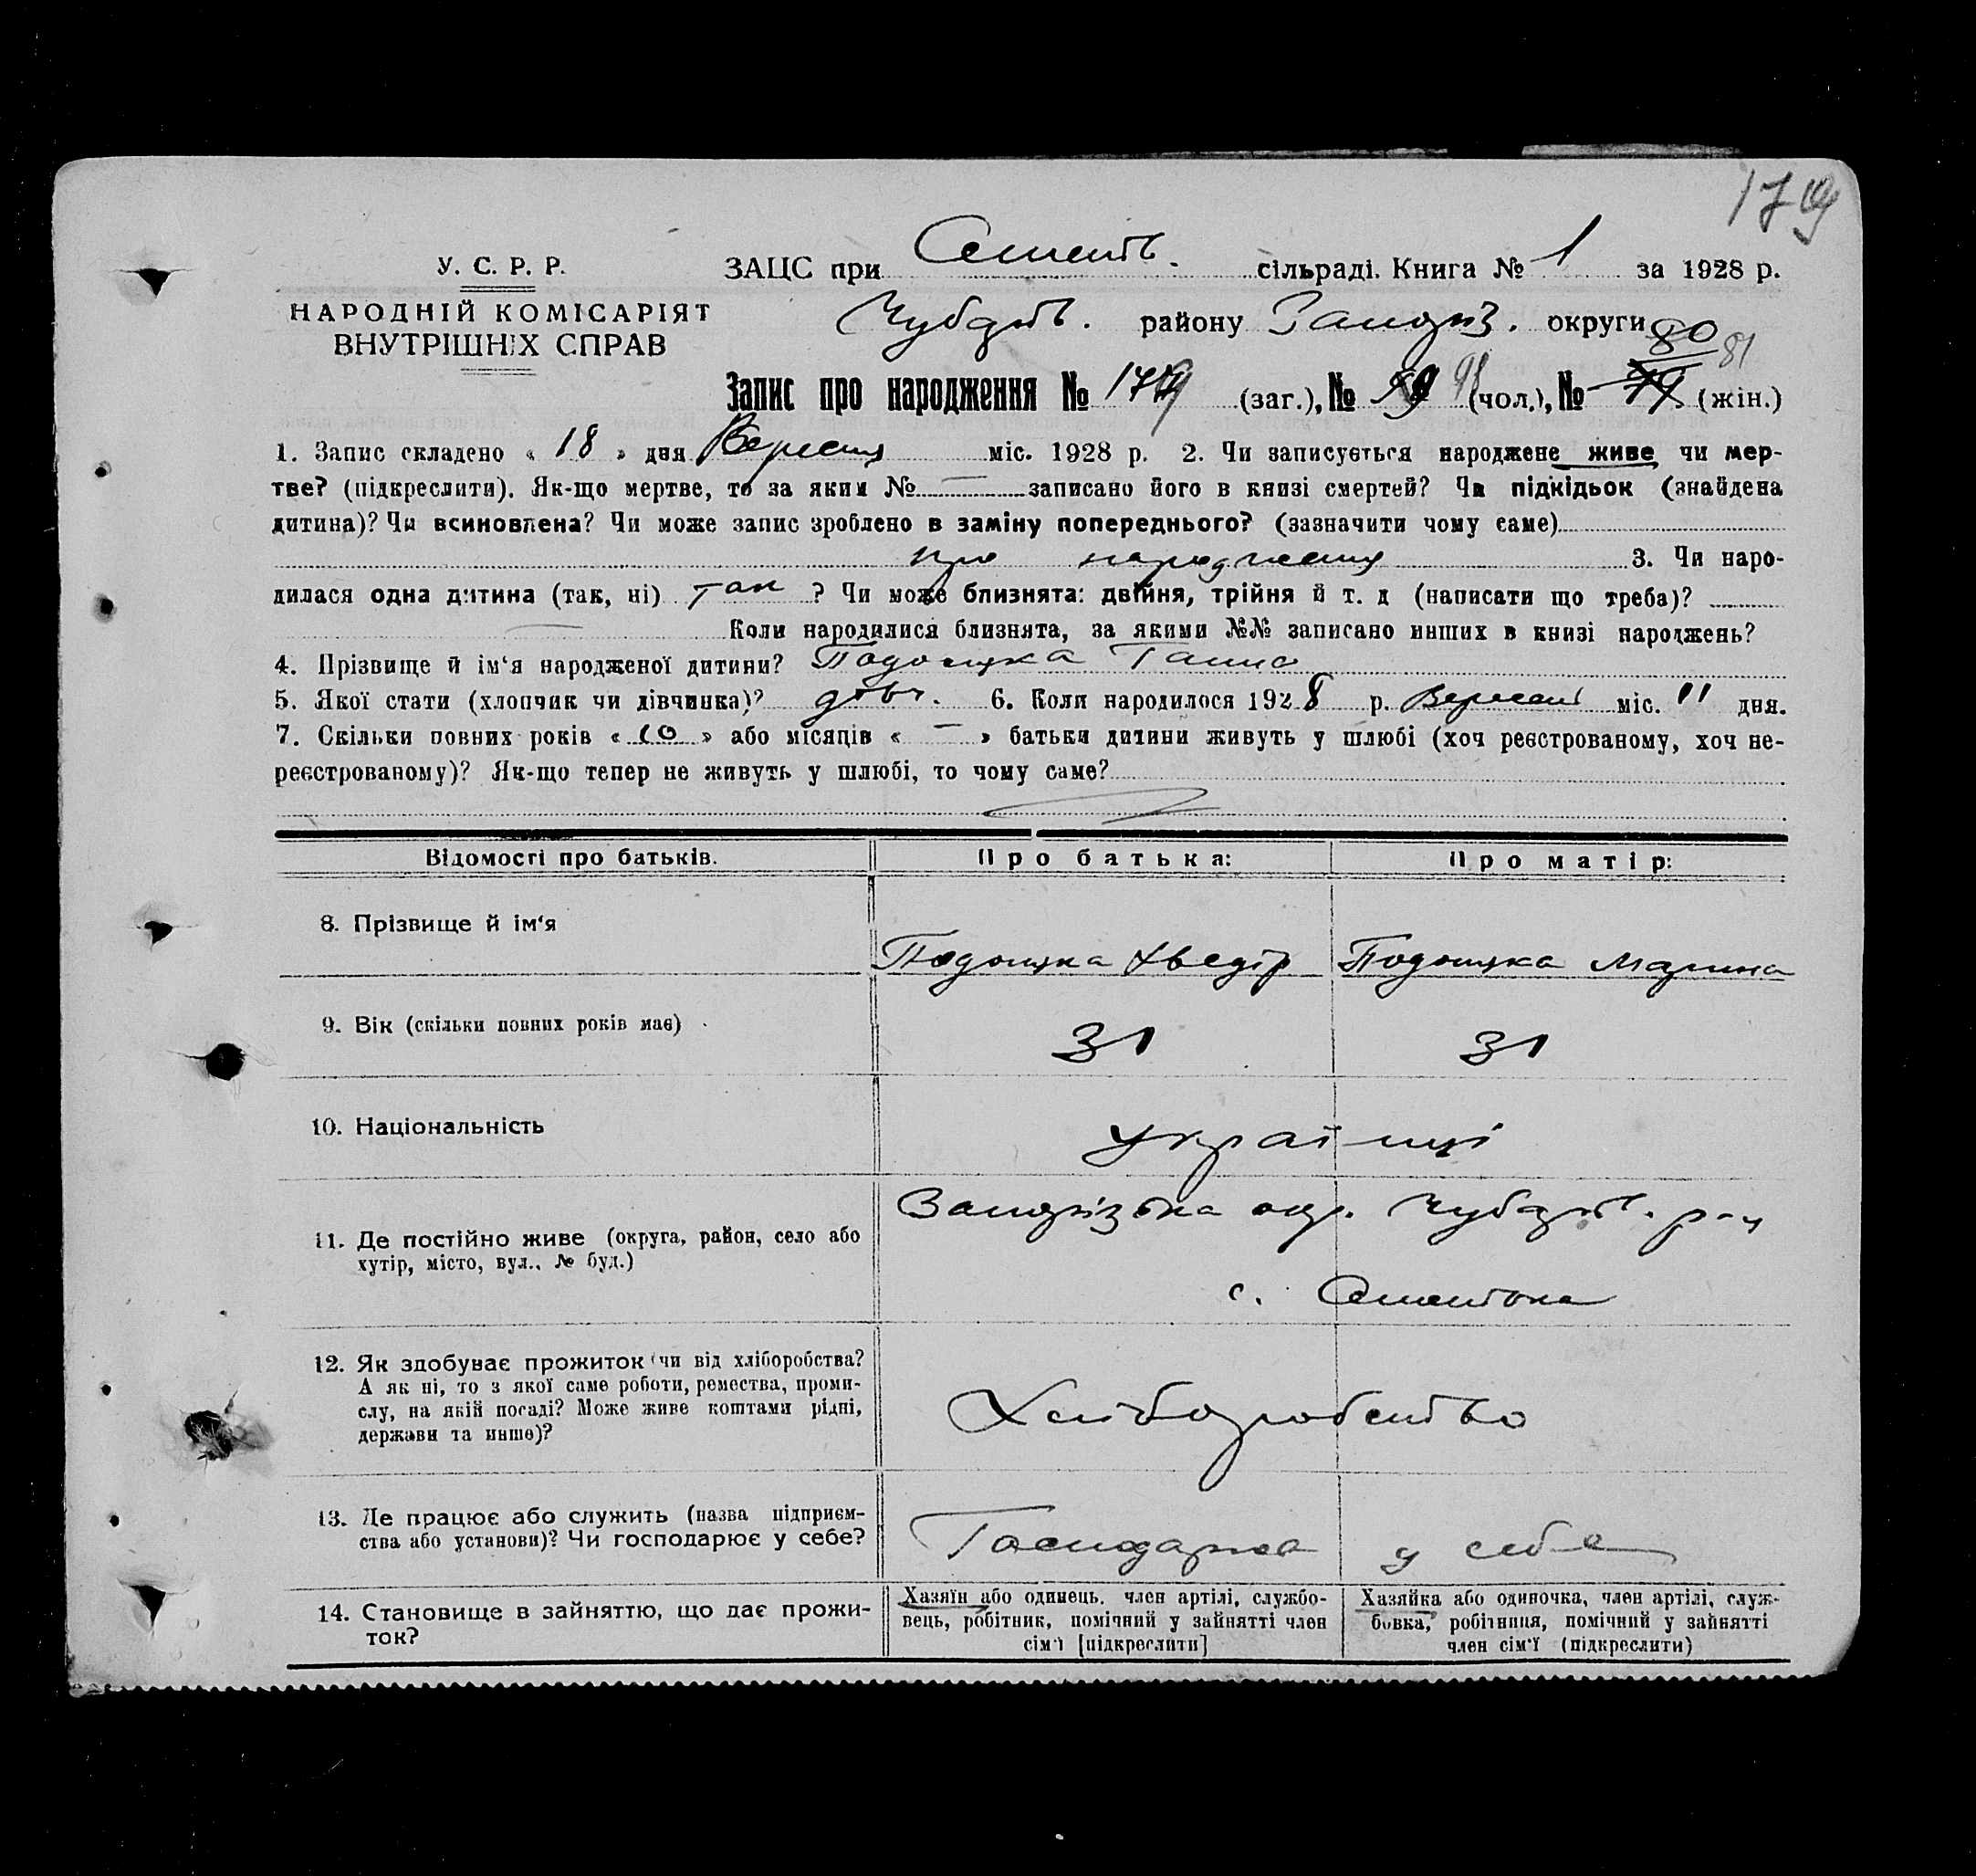 179
У. С. Р. Р.
НАРОДНІЙ КОМІСАРІЯТ
ВНУТРІШНІХ СПРАВ
ЗАЦС при сільраді. Книга № 1 за 1928 р.
Чубарів. району Запоріз. округи
80 81
Запис про народження № 179 (заг.), № 98 (чол.), № 79 (жін.)
1. Запис складено « 18 » дня Вересня міс. 1928 р. 2. Чи записується народжене живе чи мер-
тве? (підкреслити). Як-що мертве, то за яким № — записано його в книзі смертей? Чи підкідьок (знайдена
дитина)? Чи всиновлена? Чи може запис зроблено в заміну попереднього? (зазначити чому саме)
про народження 3. Чи наро-
дилася одна дитина (так, ні) так ? Чи може близнята: двійня, трійня й т. д (написати що треба)?
Коли народилися близнята, за якими №№ записано инших в книзі народжень?
4. Прізвище й ім‘я народженої дитини? Ганна
5. Якої стати (хлопчик чи дівчинка)? дівч. 6. Коли народилося 1928 р. Вересня міс. 11 дня.
7. Скільки повних років « 10 » або місяців « — » батьки дитини живуть у шлюбі (хоч реєстрованому, хоч не-
реєстрованому)? Як-що тепер не живуть у шлюбі, то чому саме?
Відомості про батьків. Про батька: Про матір:
8. Прізвище й ім‘я
Хведір Марина
9. Вік (скільки повних років має)
31 31
10. Національність
українці
11. Де постійно живе (округа, район, село або
хутір, місто, вул., № буд.)
Запорізька окр. Чубарів. р-н
с.
12. Як здобуває прожиток (чи від хліборобства?
А як ні, то з якої саме роботи, ремества, проми-
слу, на якій посаді? Може живе коштами рідні,
держави та инше)?
Хліборобство
13. Де працює або служить (назва підприєм-
ства або установи)? Чи господарює у себе?
Господарює у себе
14. Становище в зайняттю, що дає прожи-
ток?
Хазяїн або одинець, член артілі, службо-
вець, робітник, помічний у зайнятті член
сім‘ї [підкреслити]
Хазяйка або одиночка, член артілі, служ-
бовка, робітниця, помічний у зайнятті
член сім‘ї (підкреслити)